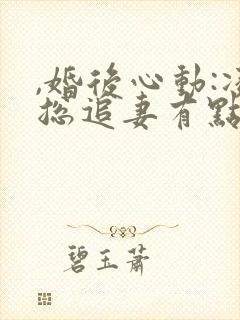 ,婚後心動:
總追妻有點
碧玉蕭